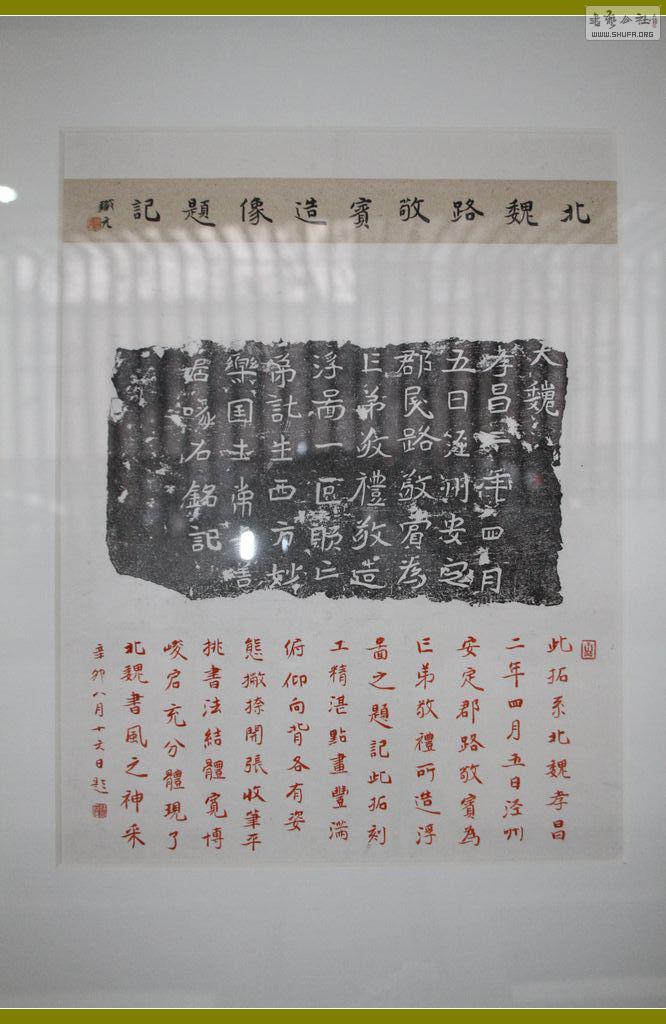 書藝公社
WWW.SHUFA.ORG
北魏路敬賓造像題記
大魏
孝昌二年四月
五日涇州安定
郡民路敬賓為
亡弟敬禮敬造
浮啚一區願亡
弟託生西方妙
樂国土常
石銘記
此拓系北魏孝昌
二年四月五日涇州
安定郡路敬賓為
亡弟敬禮所造浮
啚之題記此拓刻
工精湛點畫豐滿
俯仰向背各有姿
態撇捺開張收筆平
挑書法結體寬博
峻宕充分體現了
北魏書風之神采
辛卯八月十六日題